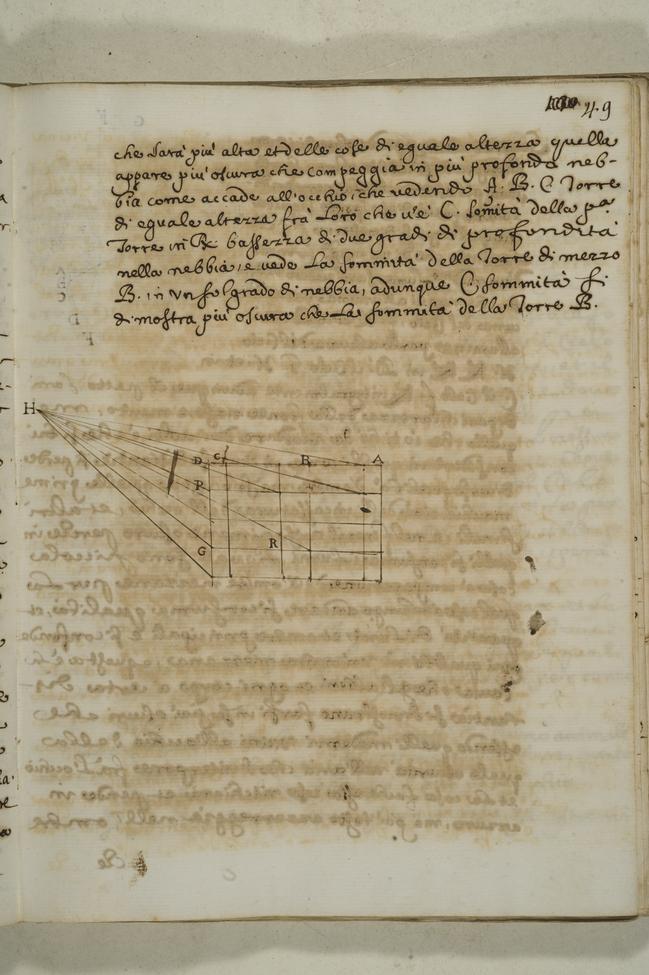 49
che sarà più alta et delle cose di eguale altezza quella
appare più oscura che campeggia in più profonda neb-
bia come accade all'occhio, che vedendo A. B. C Torre
di eguale altezza frà Loro che ve C. somità della pa
Torre in R bassezza di due gradi di profondità
nella nebbia, e vede La sommità della Torre di mezzo
B. in un sol grado di nebbia, adunque C sommità si
dimostra più oscura che La sommità della Torre B.
H
D C B A
P
G R